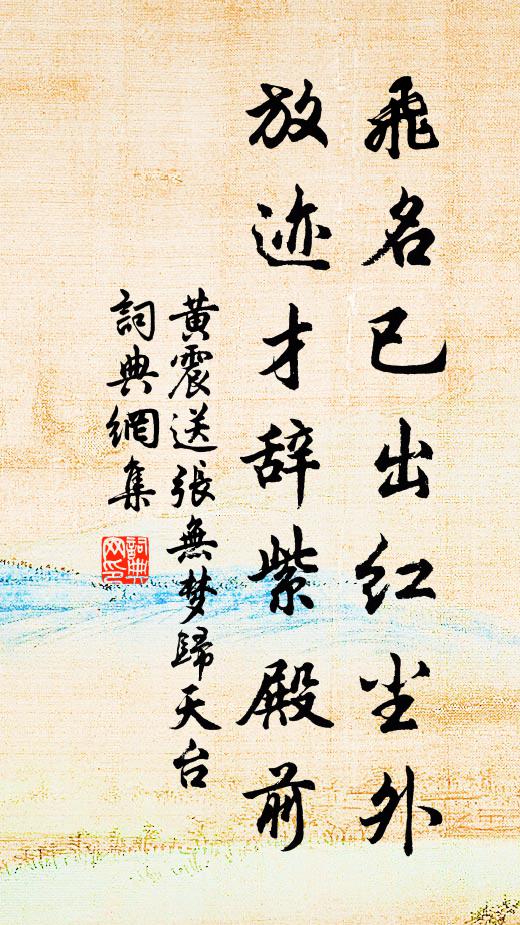 飛名已出红尘外
放迹才辞紫殿前
黄震送張無梦歸天台
詞典網集
詞典
网印